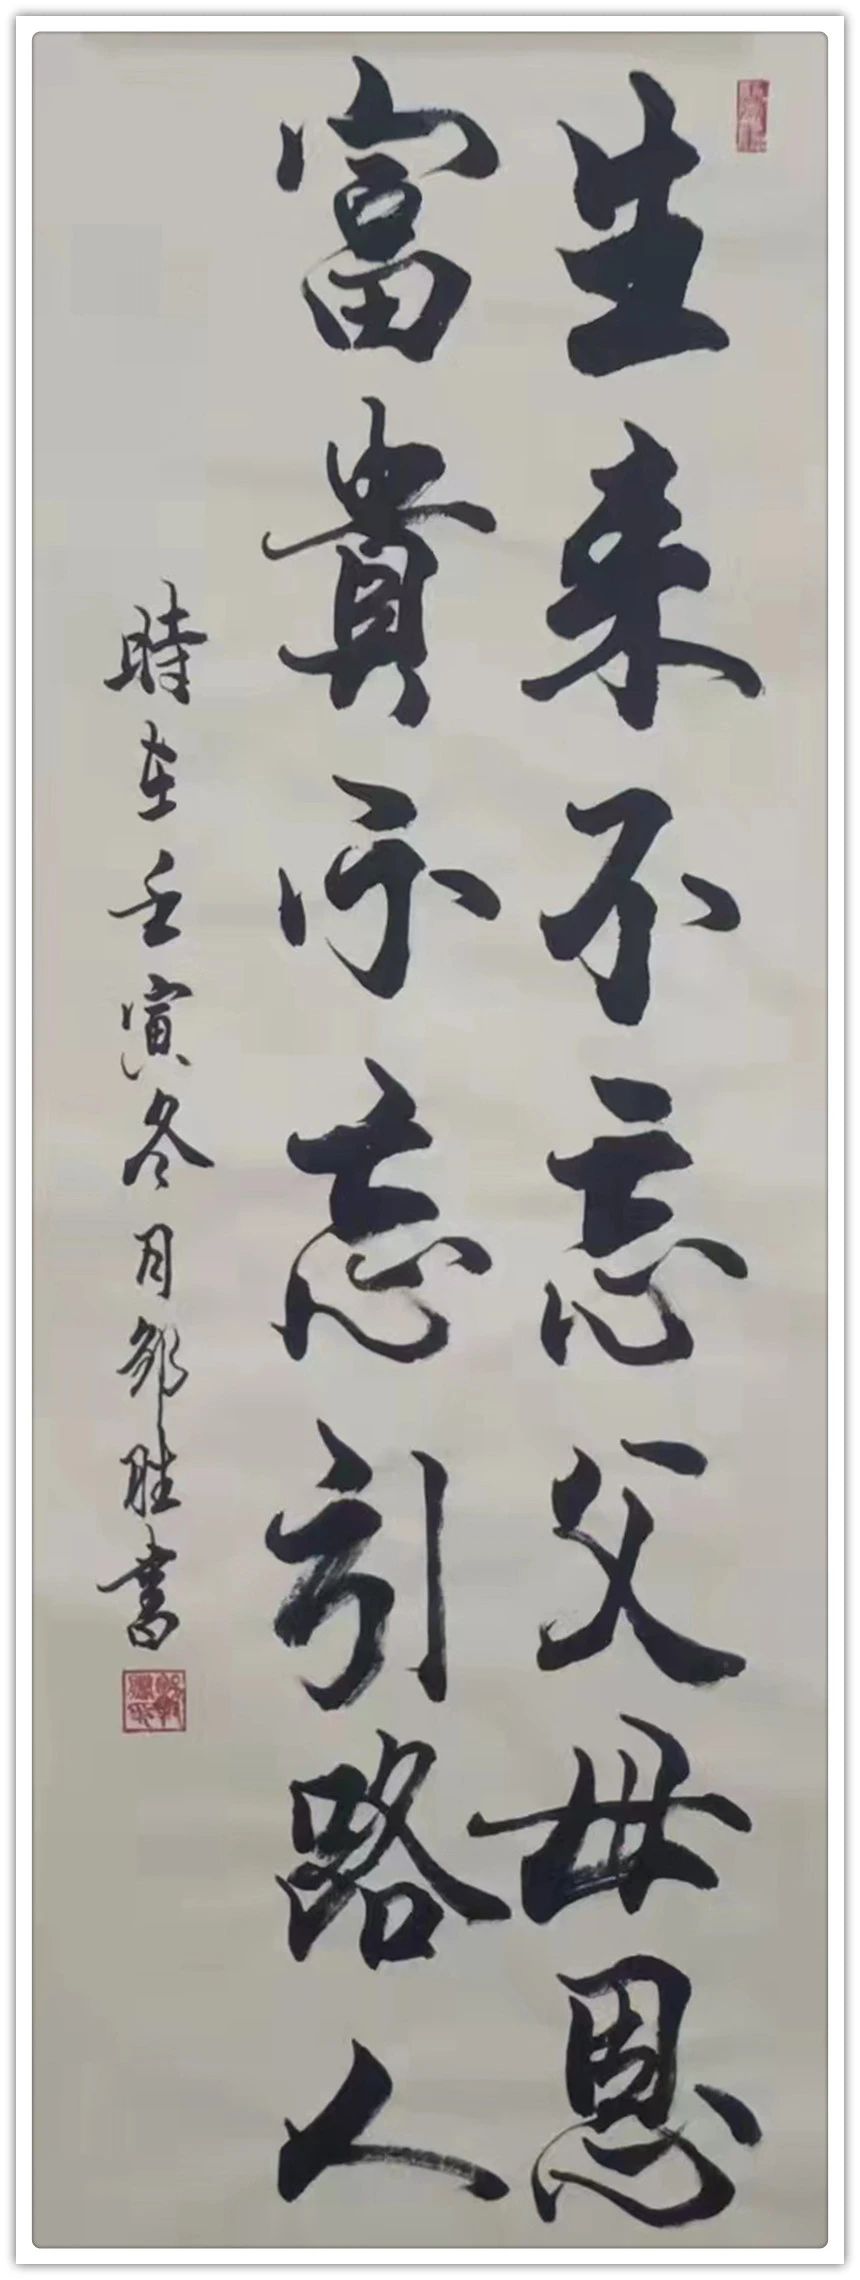 生来不忘父母恩
富貴不忘引路人
時在壬寅冬月邹胜書